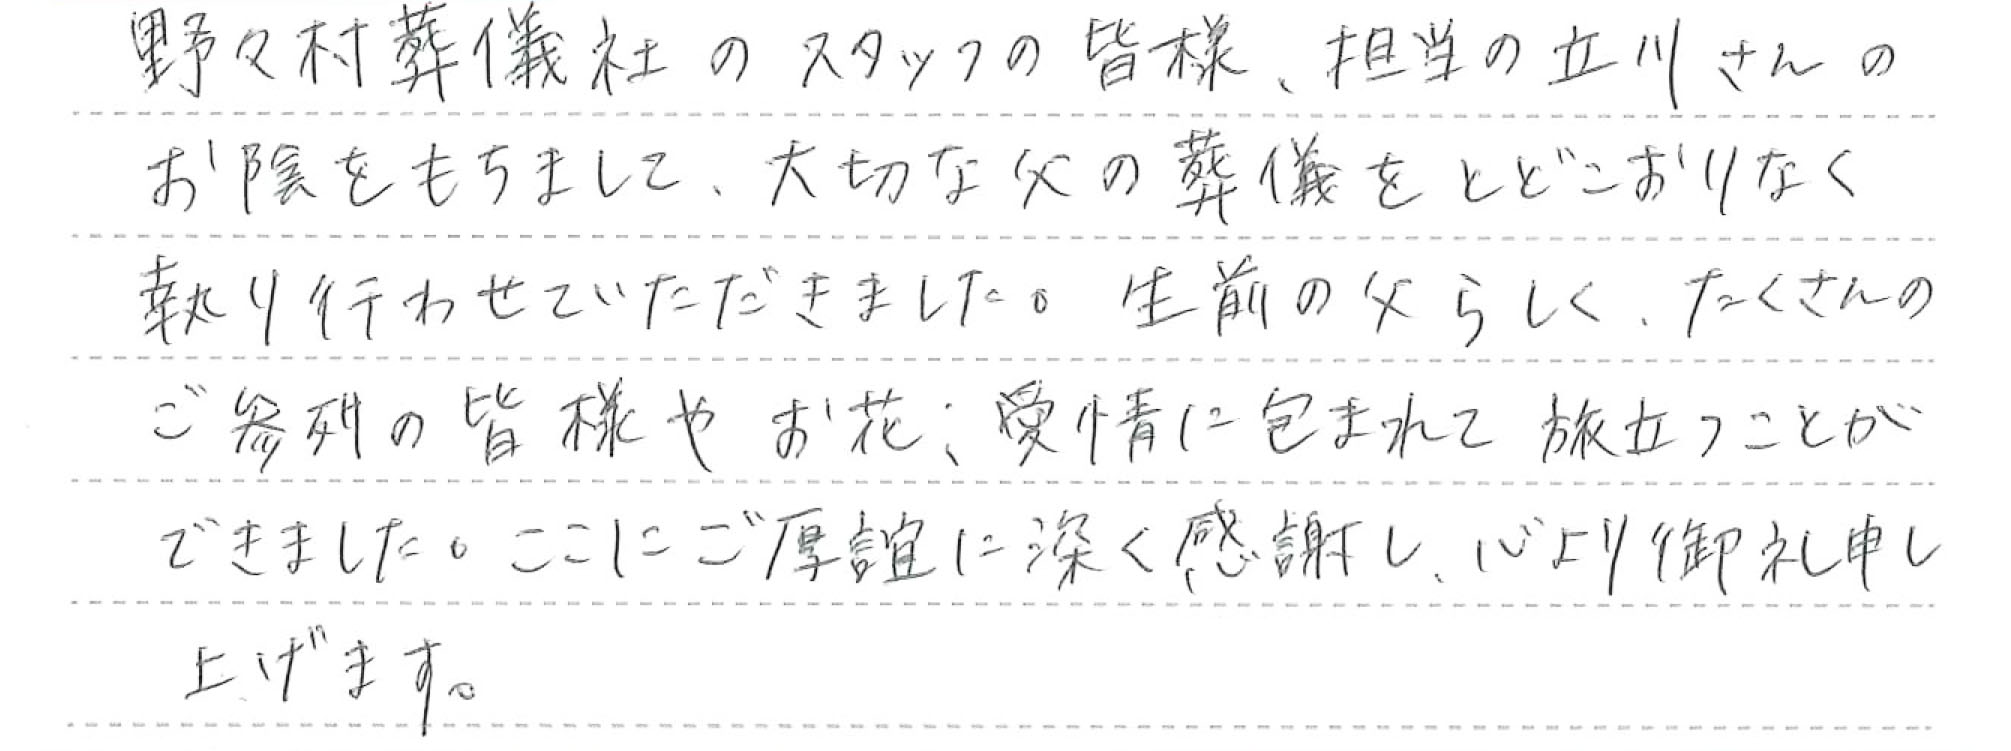 野々村葬儀社のスタッフの皆様、担当の立川さんの
お陰をもちまして、大切な父の葬儀をとどこおりなく
執り行わせていただきました。生前の父らしく、たくさんの
ご参列の皆様やお花、愛情に包まれて旅立つことが
できました。ここにご厚誼に深く感謝し、心より御礼申し
上げます。